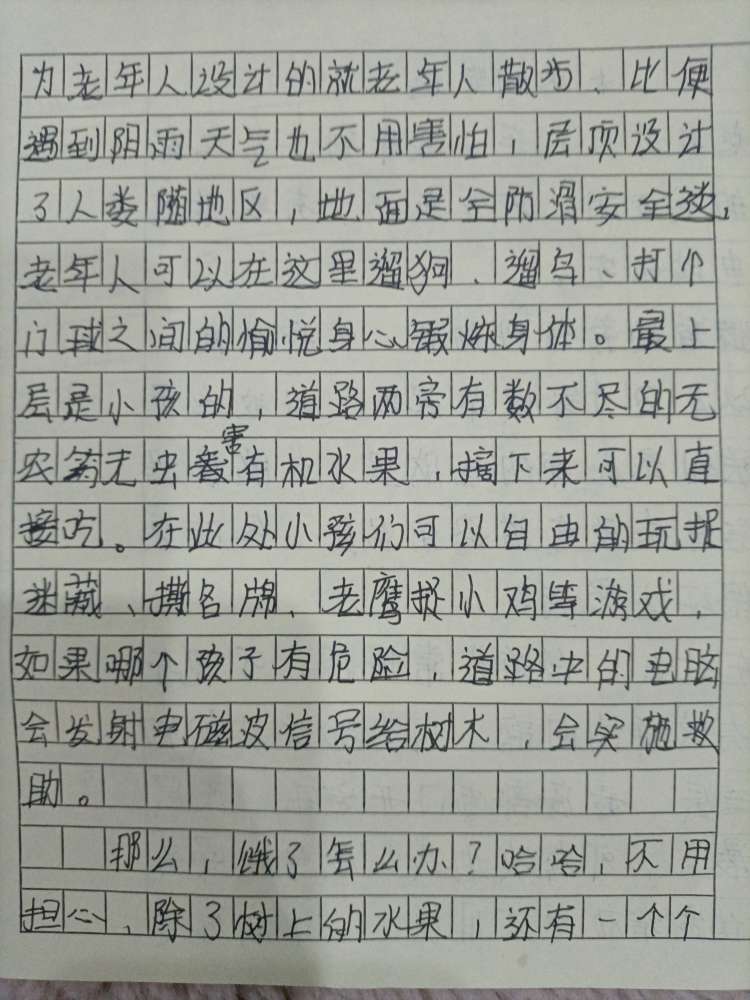 为老年人设计的就老年人散步、比便
遇到阴雨天气也不用害怕，层顶设计
了人类随地区，地面是全防滑安全毯，
老年人可以在这里遛狗、遛鸟、打个
门球之间的愉悦身心锻炼身体。最上
层是小孩的，道路两旁有数不尽的无
农药无虫害有机水果，摘下来可以直
接吃。在此处小孩们可以自由的玩捉
迷藏、撕名牌、老鹰捉小鸡等游戏，
如果哪个孩子有危险，道路中的电脑
会发射电磁波信号给树木，会实施救
助。
那么，饿了怎么办？哈哈，不用
担心、除了树上的水果，还有一个个